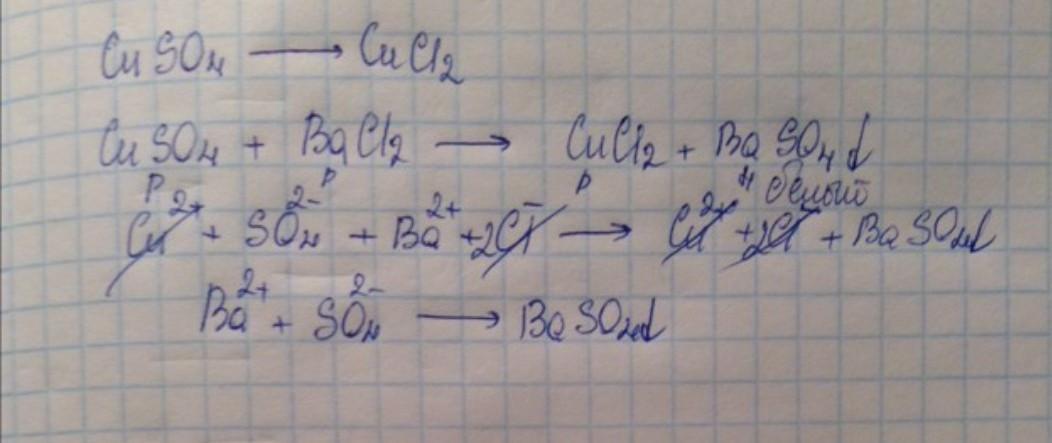 CuSO₄ ⟶ CuCl₂
CuSO₄ + BaCl₂ ⟶ CuCl₂ + BaSO₄↓
р р р н белый
Cu²⁺ + SO₄²⁻ + Ba²⁺ + 2Cl⁻ ⟶ Cu²⁺ + 2Cl⁻ + BaSO₄↓
Ba²⁺ + SO₄²⁻ ⟶ BaSO₄↓